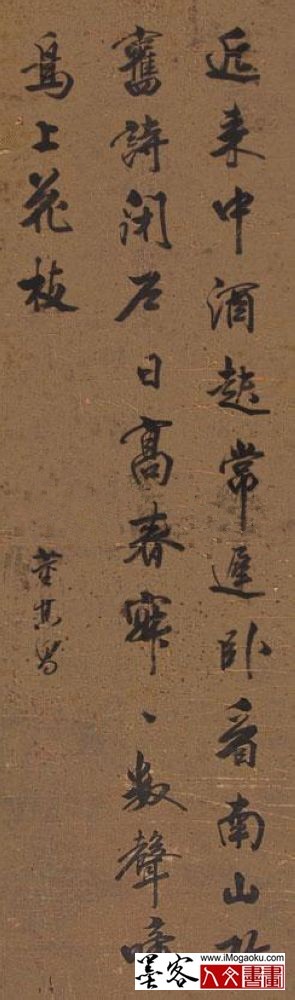 近来中酒起常遲卧看南山改
舊詩閉戶日高春寂、數聲啼
鳥上花枝
董其昌
墨客
www.iMogaoku.com
人文書畫